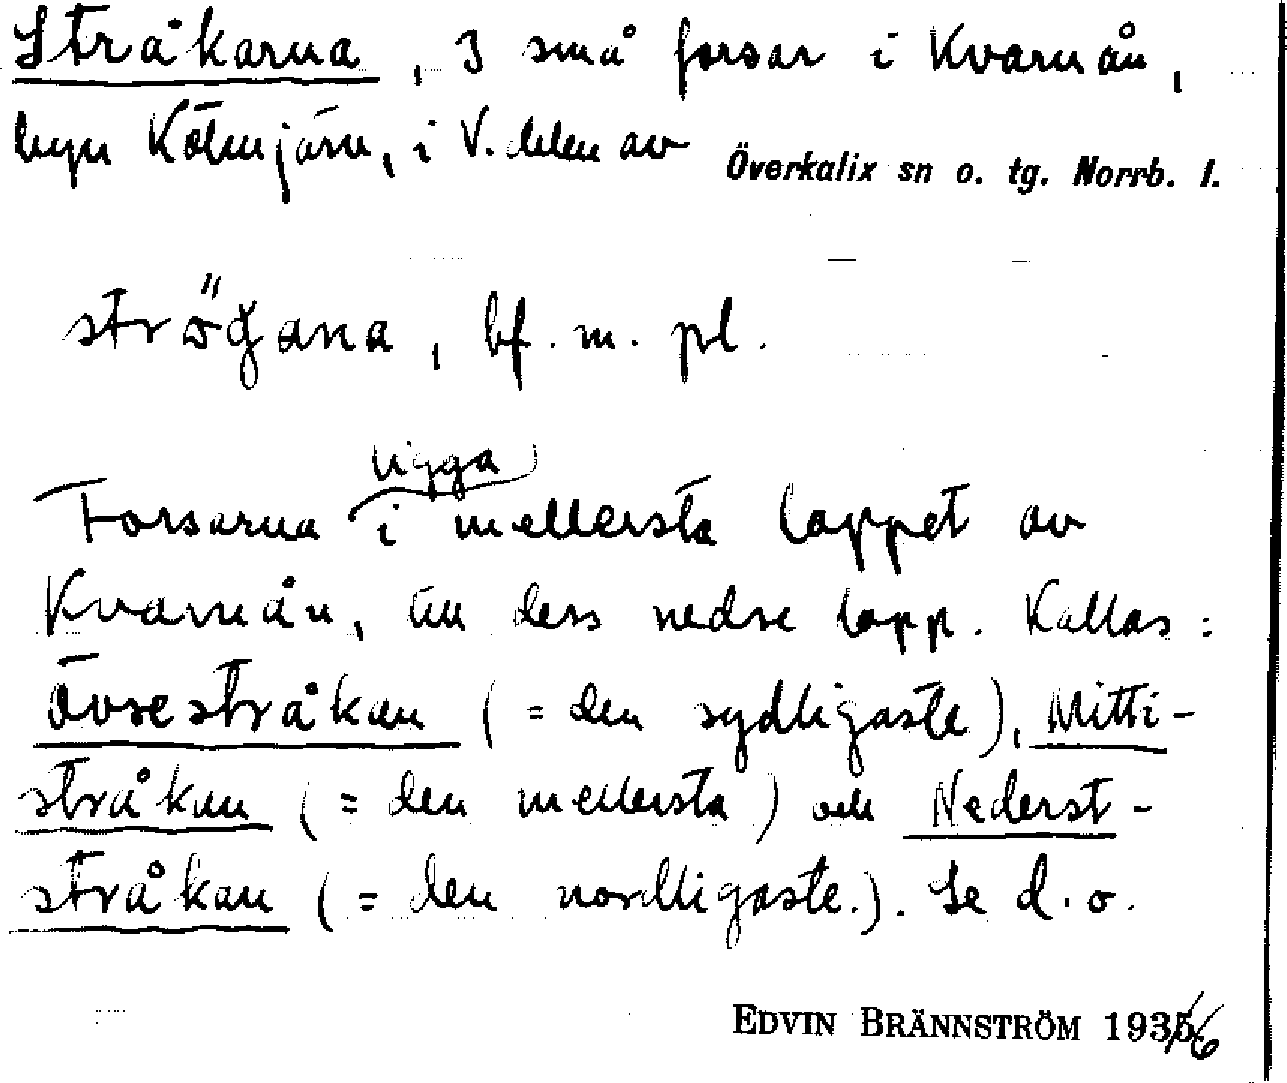 Stråkarna, 3 små forsar i Kvarnån,
byn Kölmjärn, i V. delen av Överkalix sn o. tg. Norrb. l.
strögana, bf. m. pl.
ligga
Forsarna i mellersta loppet av
Kvarnån, till dess nedre lopp. Kallas:
Övsestråkan (= den sydligaste), Mitti-
stråkan (= den mellersta) och Nederst-
stråkan (= den nordligaste.). Se d. o.
EDVIN BRÄNNSTRÖM 1936